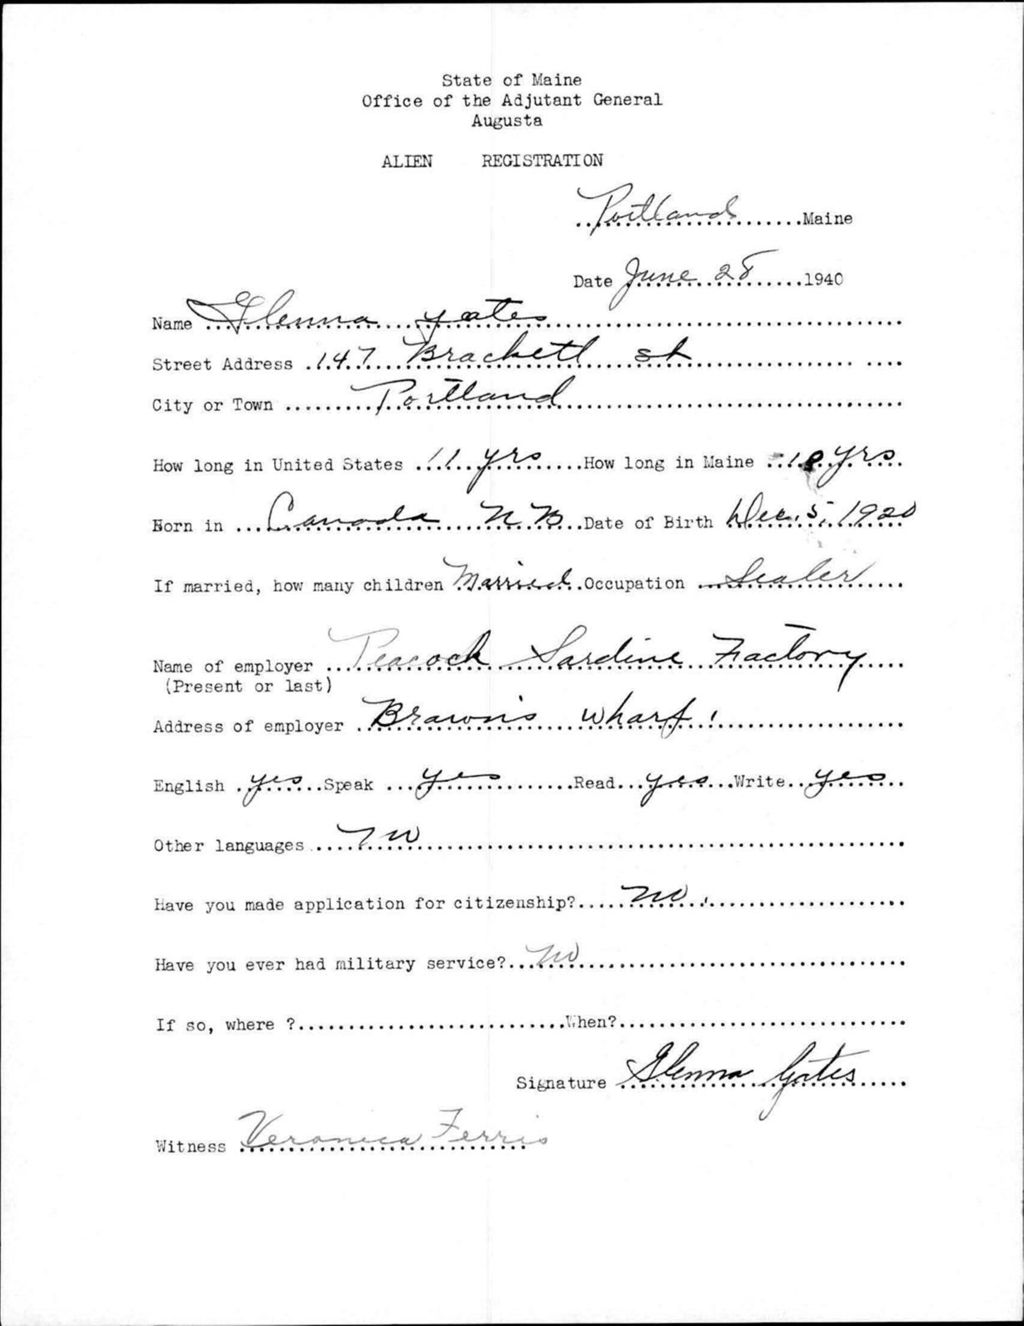 State of Maine
Office of the Adjutant General
Augusta
ALIEN REGISTRATION
Portland Maine
Date June 28 1940
Name Glenna Yates
Street Address 147 Brackett st
City or Town Portland
How long in United States 11 yrs How long in Maine 10 yrs
Born in Canada N B Date of Birth Dec. 5, 1920
If married, how many children Married Occupation Sealer
Name of employer Peacock Sardine Factory
(Present or last)
Address of employer Brawn's Wharf
English yes Speak yes Read yes Write yes
Other languages no
Have you made application for citizenship? no
Have you ever had military service? no
If so, where ? When?
Signature Glenna Yates
Witness Veronica Ferris